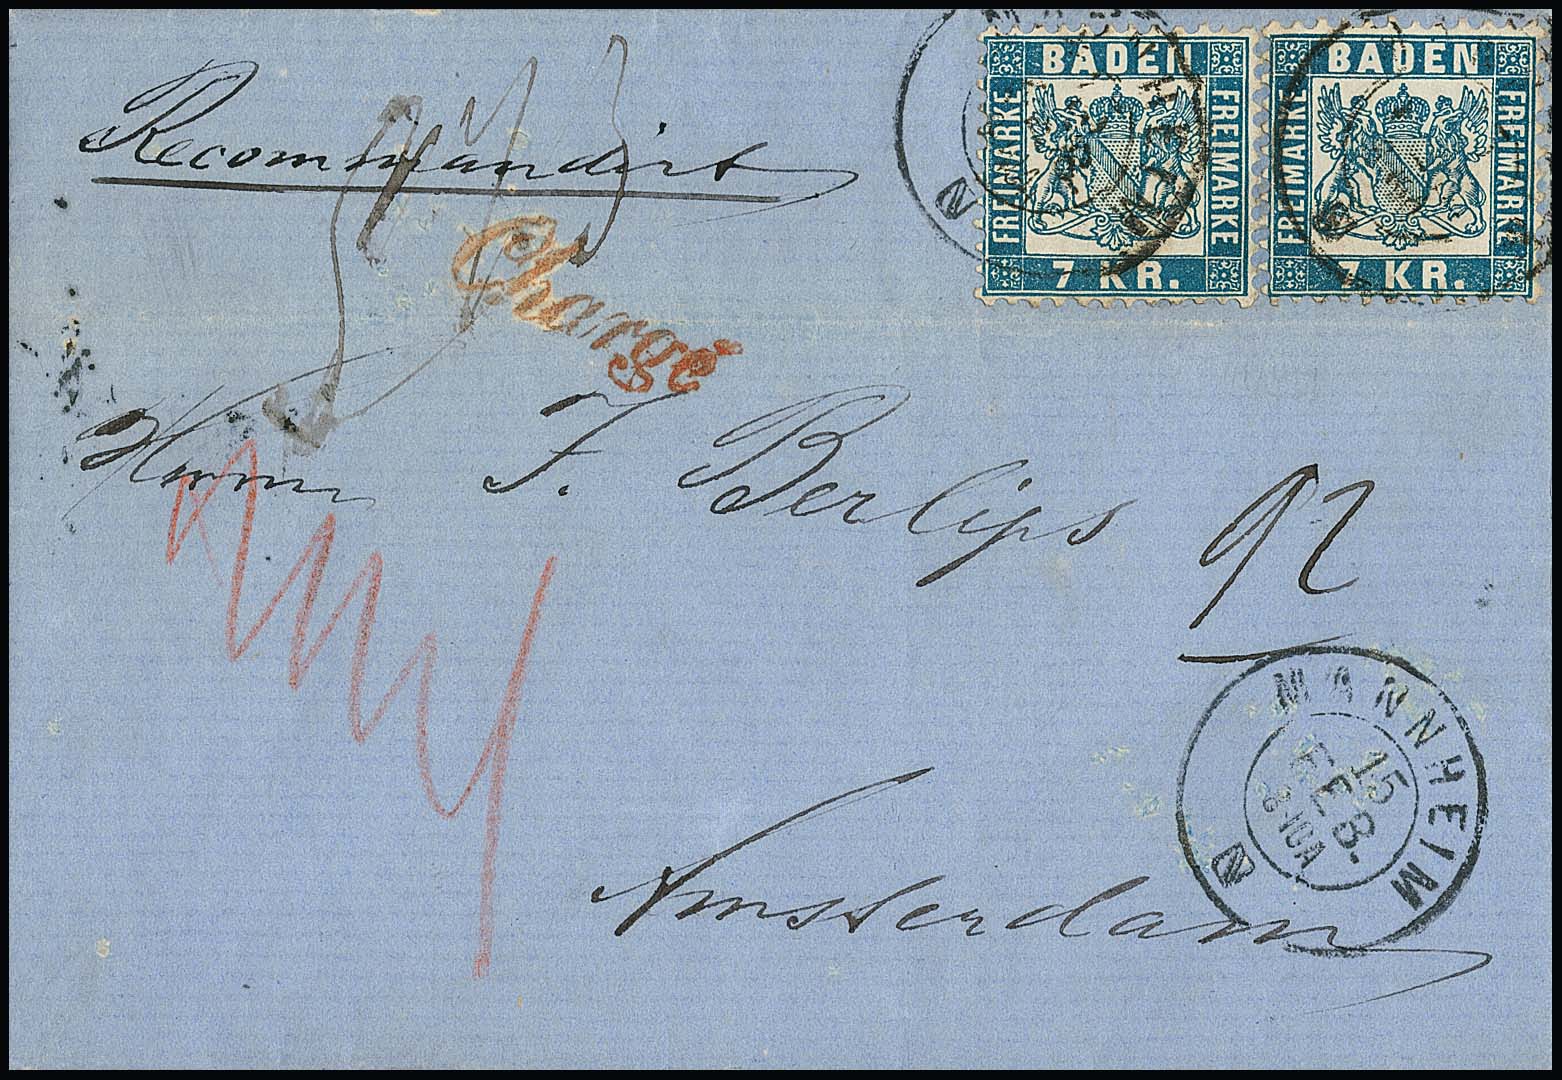 Recommandirt
BADEN
FREIMARKE
FREIMARKE
7 KR.
BADEN
FREIMARKE
FREIMARKE
7 KR.
Chargé
Herrn F. Berlips
92
MANNHEIM
15
FEB.
8-10A
N
Amsterdam